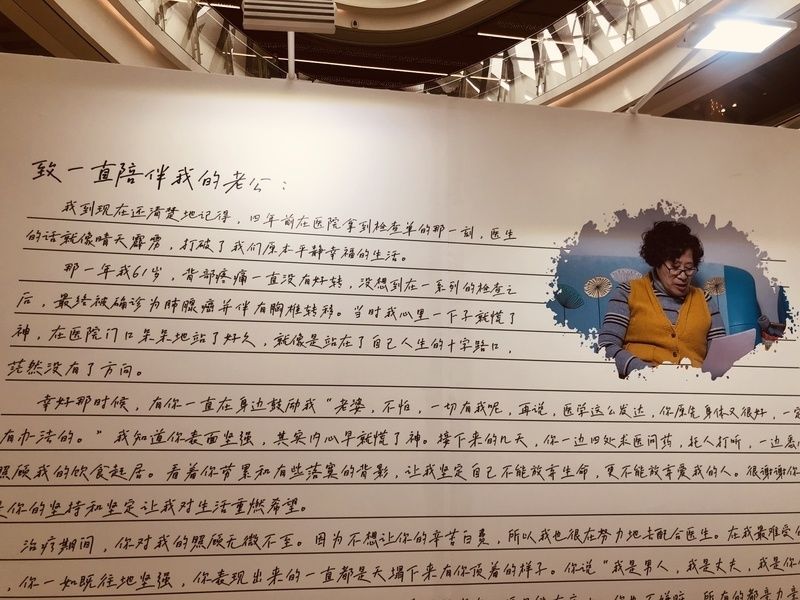 致一直陪伴我的老公：
我到现在还清楚地记得，四年前在医院拿到检查单的那一刻，医生
的话就像晴天霹雳，打破了我们原本平静幸福的生活。
那一年我61岁，背部疼痛一直没有好转，没想到在一系列的检查之
后，最终被确诊为肺腺癌并伴有胸椎转移。当时我心里一下子就慌了
神，在医院门口呆呆地站了好久，就像是站在了自己人生的十字路口，
茫然没有了方向。
幸好那时候，有你一直在身边鼓励我“老婆，不怕，一切有我呢，再说，医学这么发达，你原先身体又很好，一定
有办法的。”我知道你表面坚强，其实内心早就慌了神。接下来的几天，你一边四处求医问药，托人打听，一边悉
照顾我的饮食起居。看着你劳累和有些落寞的背影，让我坚定自己不能放弃生命，更不能放弃爱我的人。很谢谢你
是你的坚持和坚定让我对生活重燃希望。
治疗期间，你对我的照顾无微不至。因为不想让你的辛苦白费，所以我也很在努力地去配合医生。在我最难受的
，你一如既往地坚强，你表现出来的一直都是天塌下来有你顶着的样子。你说“我是男人，我是丈夫，我是你